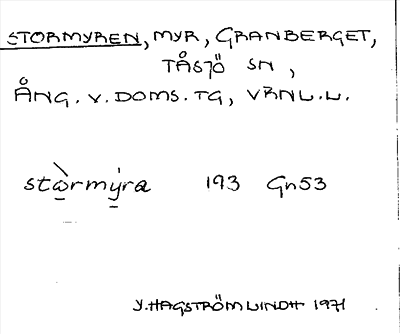 STORMYREN, MYR, GRANBERGET,
TÅSJÖ SN,
ÅNG. V. DOMS. TG, VRNL.L.
stò̱rmý̱ra 193 Gn53
Y. HAGSTRÖM LINDH 1971